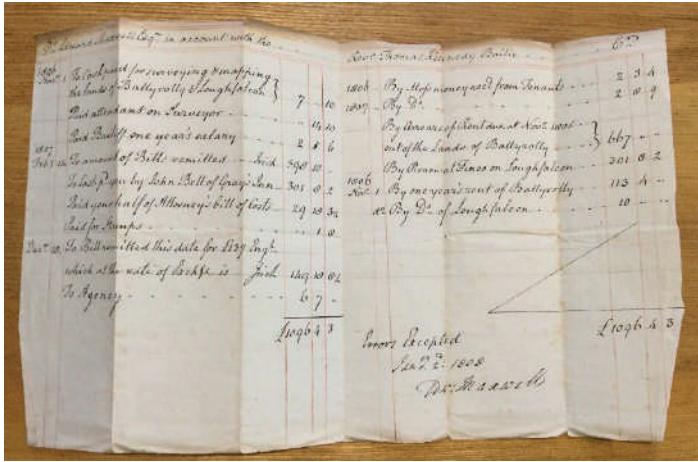 Dr. Edward Maxwell Esqr. in account with the
1806
Novr. 1 To Cash paid for surveying & mapping
the lands of Ballyrolly & Loughfalcon } 7 " 10
Paid attendant on Surveyor
Paid Bailiff one year's salary 2 5 6
1807
To amount of Bills remitted Irish 598 10
To Cash pd. you by John Bell of Gray's Inn 301 8 2
Paid your half of Attorney's bill of Costs 29 18
Paid for Stamps
Decr. To Bill remitted this date for Engh.
which at the rate of Exche. is Irish 149 18
To Agency 6 7
£1096 4 3
Revd. Thomas Kennedy Bailie Cr.
1806 By Hops money recd. from Tenants 2 3 4
1807 By Do. 2 8 9
By Arrears of Rent due at Novr. 1806
out of the Lands of Ballyrolly } 667
By Renewal Fines on Loughfalcon 301 8 2
1806
Nov. 1 By one year's rent of Ballyrolly 113 4
do. By Do. of Loughfalcon 10
£1096 4 3
Errors Excepted
1808
Maxwell